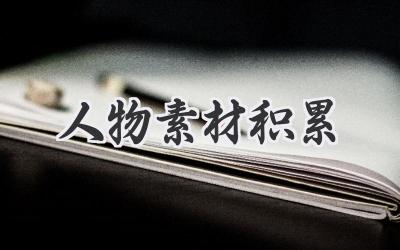 人物素材积累